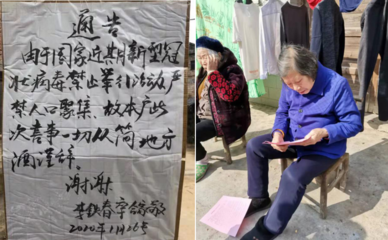 通告
由于国家近期新型冠
状病毒禁止举行活动,严
禁人口聚集、故本户此
次喜事一切从简地方
酒谨辞.
谢谢
李铁春率合家敬
2020年1月26号